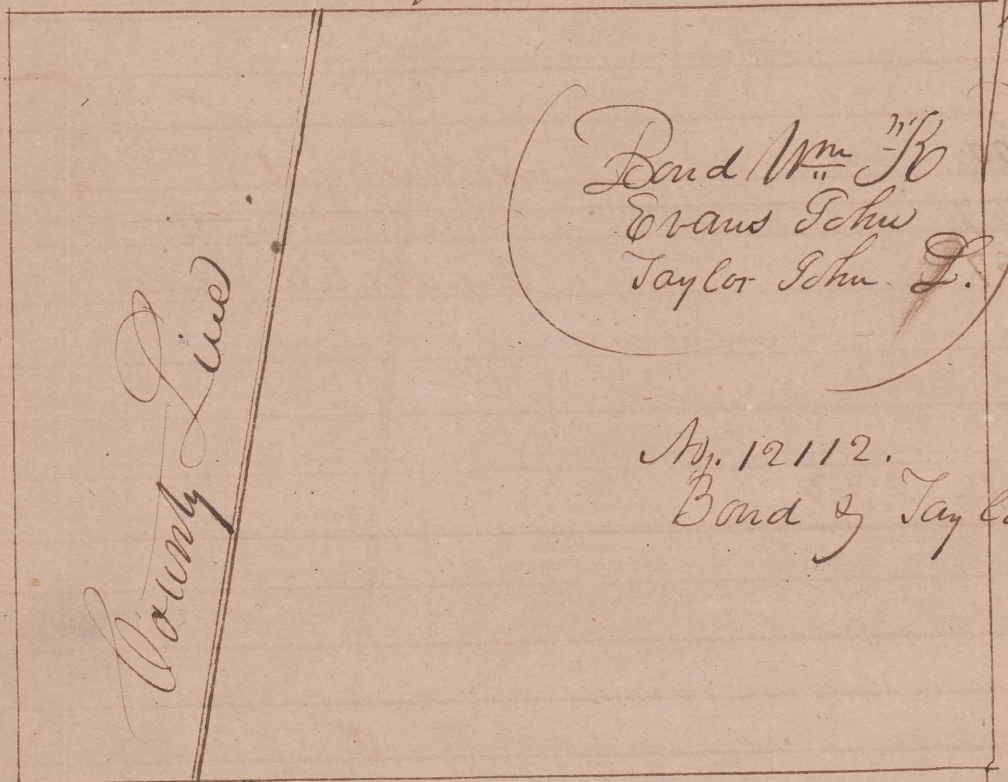 County Line
Bond Wm K
Evans John
Taylor John L.
No. 12112.
Bond & Taylo